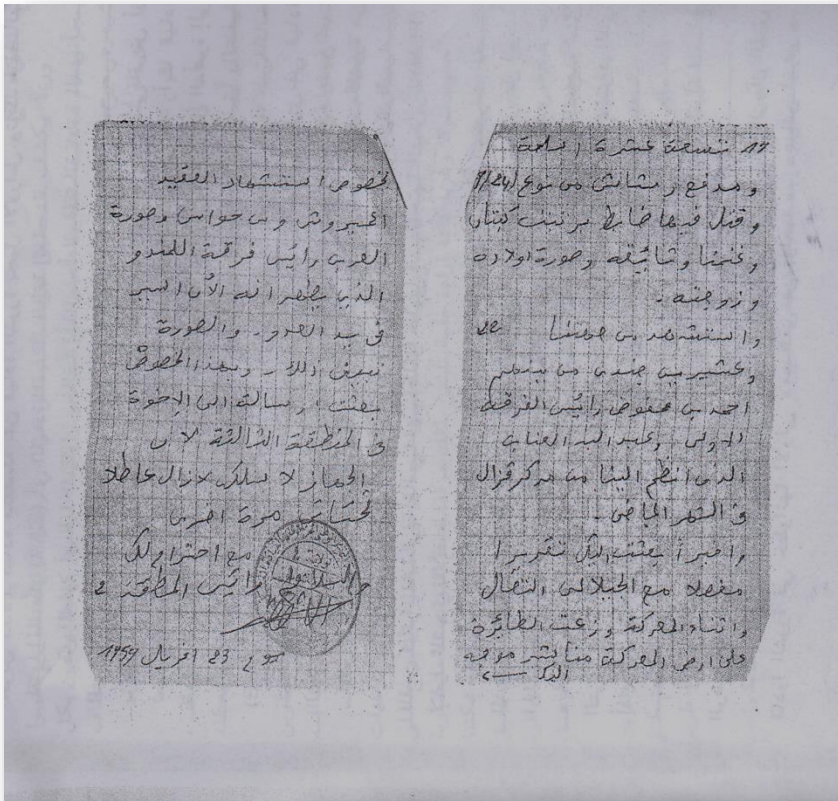 19 تسعة عشرة اسلحة
ومدفع رشاش من نوع (24/
وقتل فيها ضابط برتبت كبتان
وغنمنا وثائيقه وصورة اولاده
وزوجته .
واستشهد من جهتنا 22
وعشيرين جندي من بينهم
احمد بن محفوص رائيس الفرقة
الاولى وعبد
الذي انظم الينا من مركز قزال
في الشهر الماضي .
واخيرا بعثت اليك تقريرا
مفصلا مع الجيلالي النضال
واثناء المعركة وزعت الطائرة
على ارض المعركة مناشر
اليك
لخصوص استشهاد العقيد
عميروش وسي حواس وصورة
العربي رائيس فرقة الكمندو
الذي يظهر انه الأن اسير
في يد العدو . والصورة
ذلك . وبهذا الخصوص
بعثت رسالة الى الإخوة
في المنطقة الثالثة لأن
الجهاز لا سلكي لا زال عاطلا
مرة اخرى
مع احترام لك
رائيس المنطقة 2
23 افريل 1959